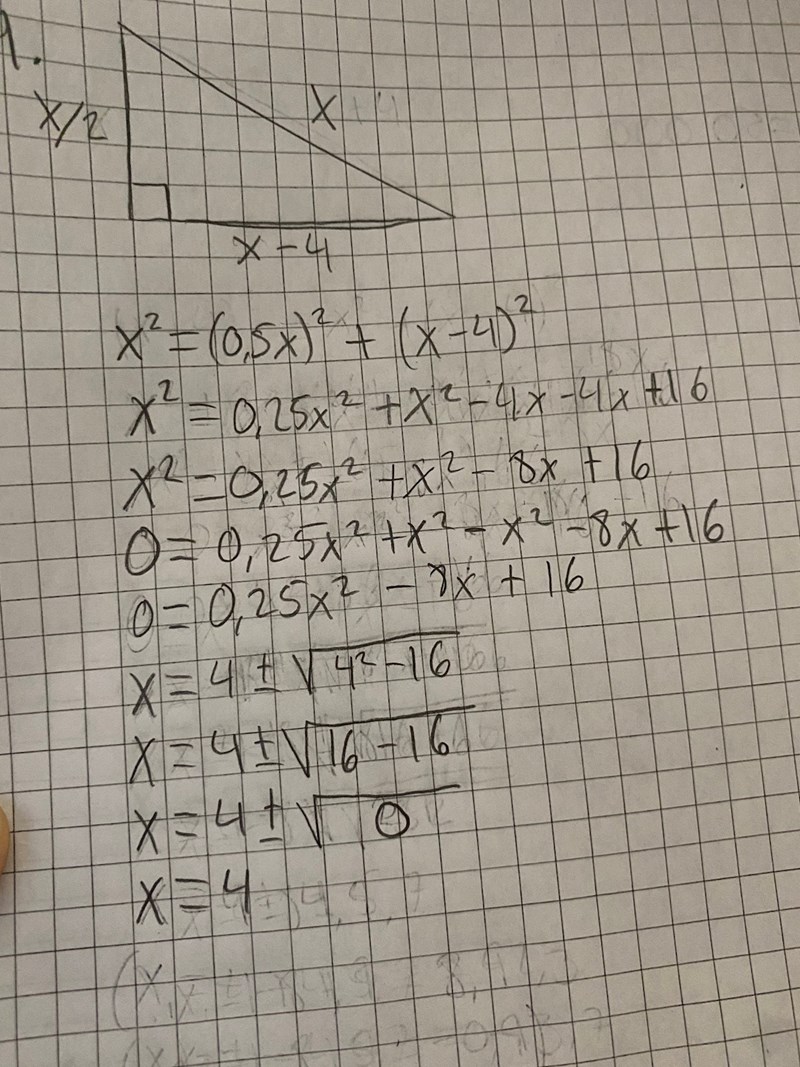 9.
x/2
x
x-4
x² = (0,5x)² + (x-4)²
x² = 0,25x² + x² - 4x - 4x + 16
x² = 0,25x² + x² - 8x + 16
0 = 0,25x² + x² - x² - 8x + 16
0 = 0,25x² - 8x + 16
x = 4 ± √4² - 16
x = 4 ± √16 - 16
x = 4 ± √0
x = 4